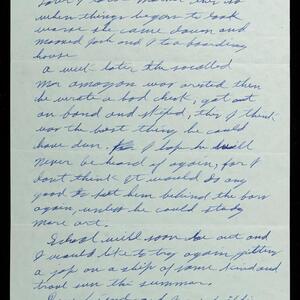 when things began to look
worse she came down and
moved Jack and I to a boarding
house.
A while later the socalled
Mr amazon was arested then
he wrote a bad check, got out
on bond and skiped, this I think
was the best thing he could
have dun. I hope he will
never be heard of again, for I
dont think it would do any
good to put him behind the bars
again, unless he could study
more art.
School will soon be out and
I would like to try again gitting
a job on a ship of some kind and
travl in the summer.